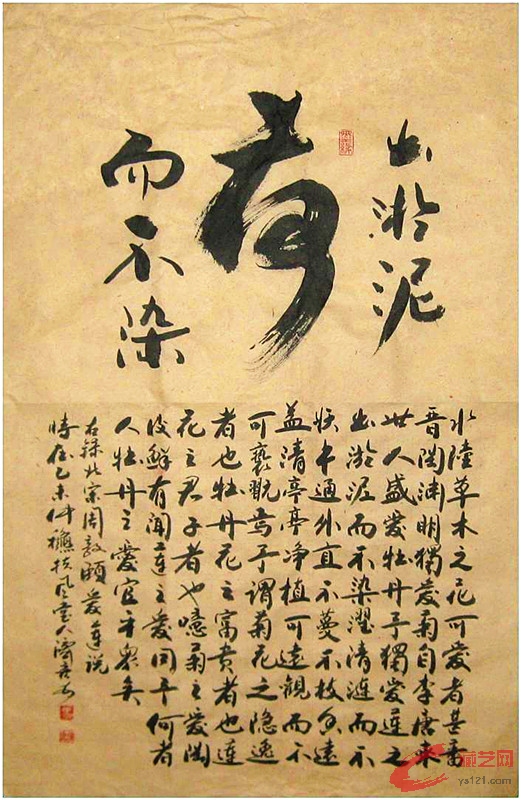 出淤泥
荷
而不染
水陸草木之花可愛者甚蕃
晋陶渊明獨愛菊自李唐来
世人盛愛牡丹予獨愛蓮之
出淤泥而不染濯清漣而不
妖中通外直不蔓不枝香遠
益清亭亭净植可遠觀而不
可褻翫焉予謂菊花之隐逸
者也牡丹花之富贵者也蓮
花之君子者也噫菊之愛陶
後鮮有聞蓮之愛同予何者
人牡丹之愛宜乎眾矣
右録北宋周敦頤愛蓮説
時在乙未
藏艺网
ys121.com